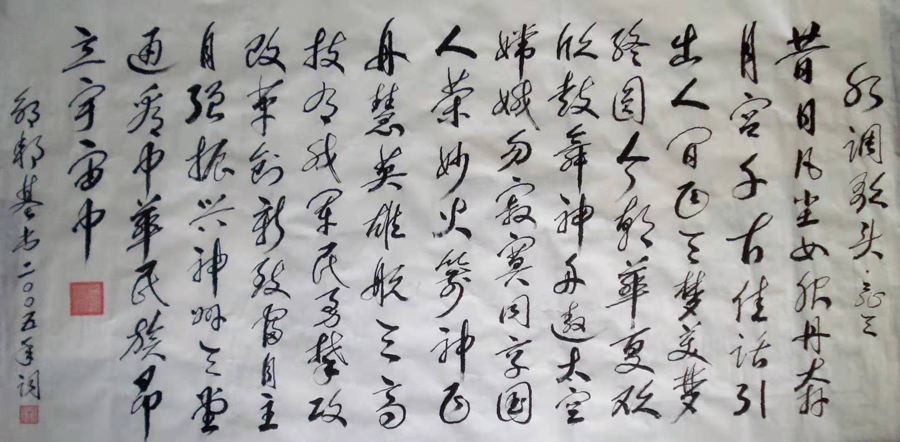 水调歌头·飞天
昔日凡尘女服丹奔
月宫千古佳话引
出人间飞天梦美梦
终圆今朝华夏欢
欣鼓舞神舟遨太空
嫦娥勿寂寞同享国
人荣妙火箭神飞
舟慧英雄航天高
技我军民勇攀
改革创新致富自主
自强振兴神州天堂
通看中华民族昂
立宇宙中
基书二〇〇五年词